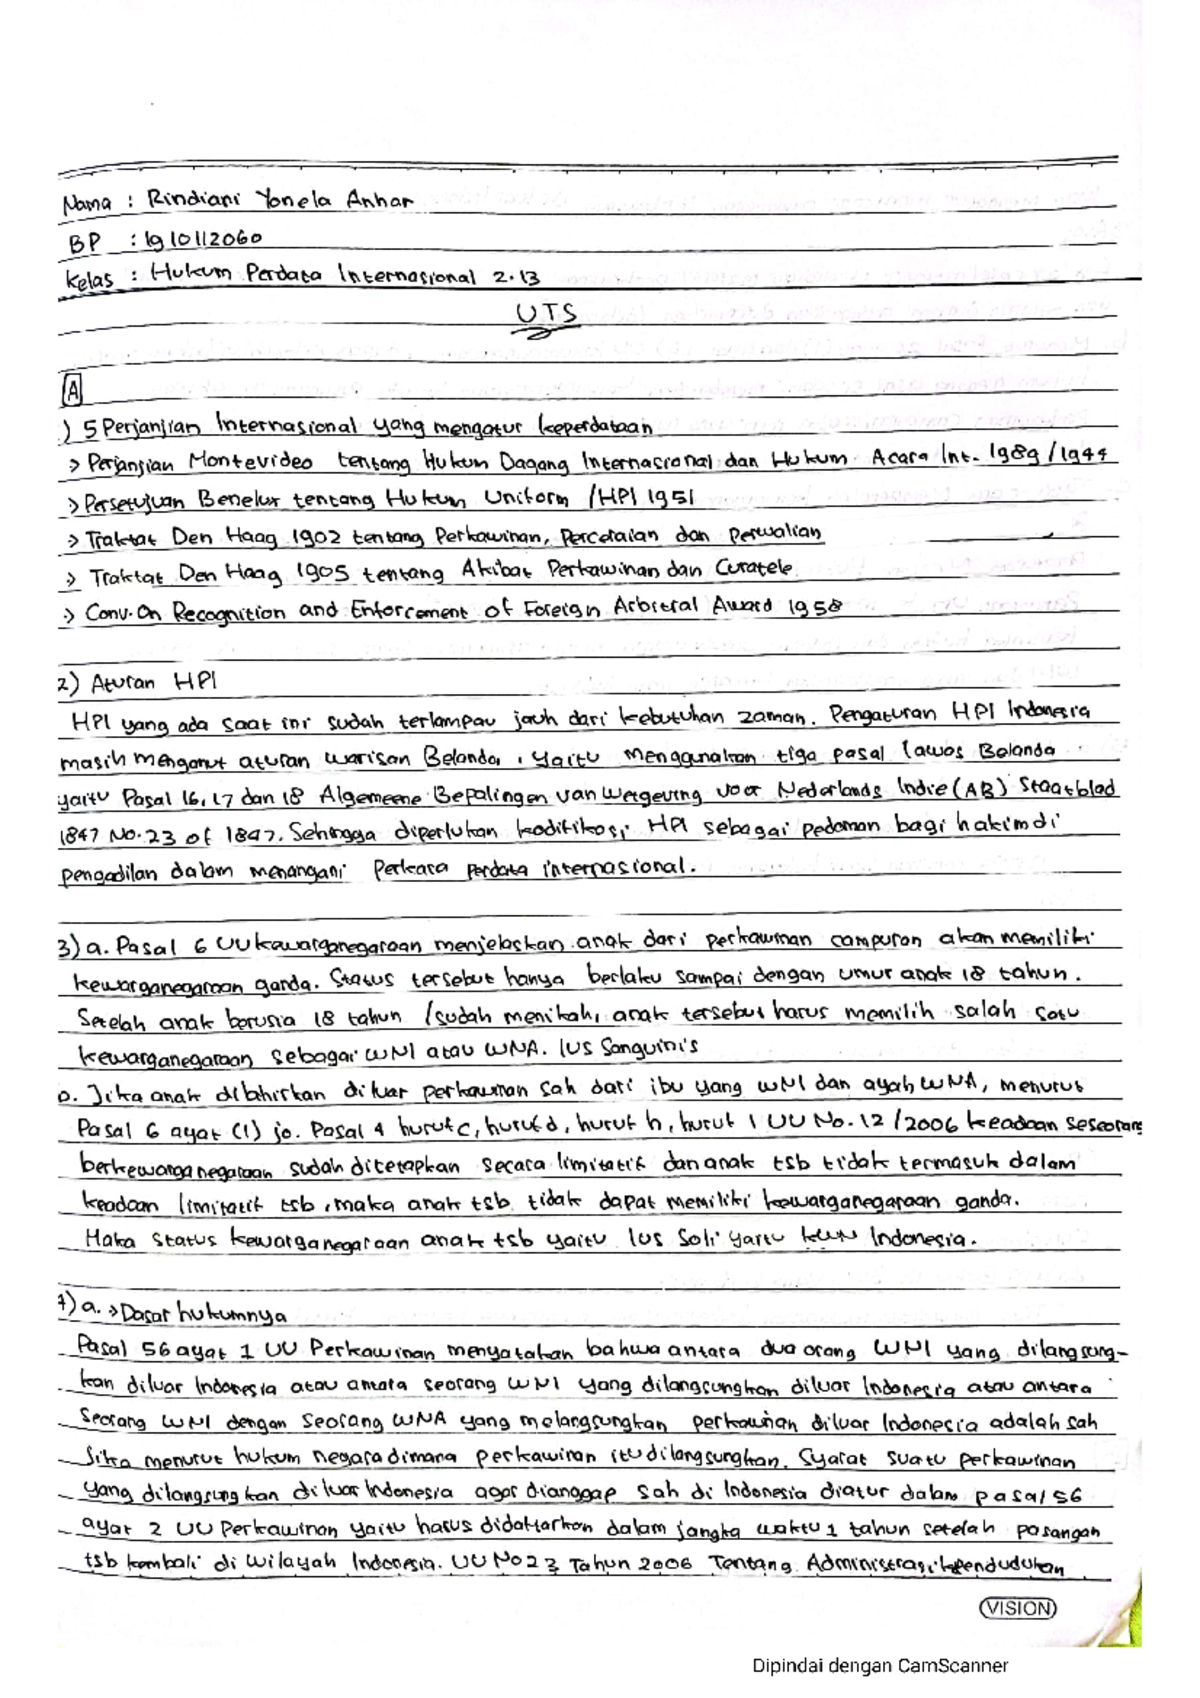 Nama : Rindiani Yonela Anhar
BP : 1910112060
Kelas : Hukum Perdata Internasional 2.13
UTS
A
) 5 Perjanjian Internasional yang mengatur keperdataan
-> Perjanjian Montevideo tentang Hukum Dagang Internasional dan Hukum Acara Int. 1989/1944
-> Persetujuan Benelux tentang Hukum Uniform /HPI 1951
-> Traktat Den Haag 1902 tentang Perkawinan, Perceraian dan Perwalian
-> Traktat Den Haag 1905 tentang Akibat Perkawinan dan Curatele
-> Conv. On Recognition and Enforcement of Foreign Arbitral Award 1958
2) Aturan HPI
HPI yang ada saat ini sudah terlampau jauh dari kebutuhan zaman. Pengaturan HPI Indonesia
masih menganut aturan warisan Belanda, yaitu menggunakan tiga pasal lawas Belanda
yaitu Pasal 16, 17 dan 18 Algemeene Bepalingen van Wetgeving voor Nederlands Indie (AB) Staatblad
1847 No. 23 of 1847. Sehingga diperlukan kodifikasi HPI sebagai pedoman bagi hakim di
pengadilan dalam menangani perkara perdata internasional.
3) a. Pasal 6 UU kawarganegaraan menjelaskan anak dari perkawinan campuran akan memiliki
kewarganegaraan ganda. Status tersebut hanya berlaku sampai dengan umur anak 18 tahun.
Setelah anak berusia 18 tahun /sudah menikah, anak tersebut harus memilih salah satu
kewarganegaraan sebagai WNI atau WNA. Ius Sanguinis
b. Jika anak dilahirkan diluar perkawinan sah dari ibu yang WNI dan ayah WNA, menurut
Pasal 6 ayat (1) jo. Pasal 4 huruf c, huruf d, huruf h, huruf l UU No. 12 /2006 keadaan seseorang
berkewarganegaraan sudah ditetapkan secara limitatif dan anak tsb tidak termasuk dalam
keadaan limitatif tsb, maka anak tsb tidak dapat memiliki kewarganegaraan ganda.
Maka status kewarganegaraan anak tsb yaitu Ius Soli yaitu Indonesia.
4) a. -> Dasar hukumnya
Pasal 56 ayat 1 UU Perkawinan menyatakan bahwa antara dua orang WNI yang dilangsung-
kan diluar Indonesia atau antara seorang WNI yang dilangsungkan diluar Indonesia atau antara
Seorang WNI dengan seorang WNA yang melangsungkan perkawinan diluar Indonesia adalah sah
Jika menurut hukum negara dimana perkawinan itu dilangsungkan. Syarat suatu perkawinan
yang dilangsungkan diluar Indonesia agar dianggap sah di Indonesia diatur dalam pasal 56
ayat 2 UU Perkawinan yaitu harus didaftarkan dalam jangka waktu 1 tahun setelah pasangan
tsb kembali di wilayah Indonesia. UU No 23 Tahun 2006 Tentang Administrasi kependudukan
VISION
Dipindai dengan CamScanner